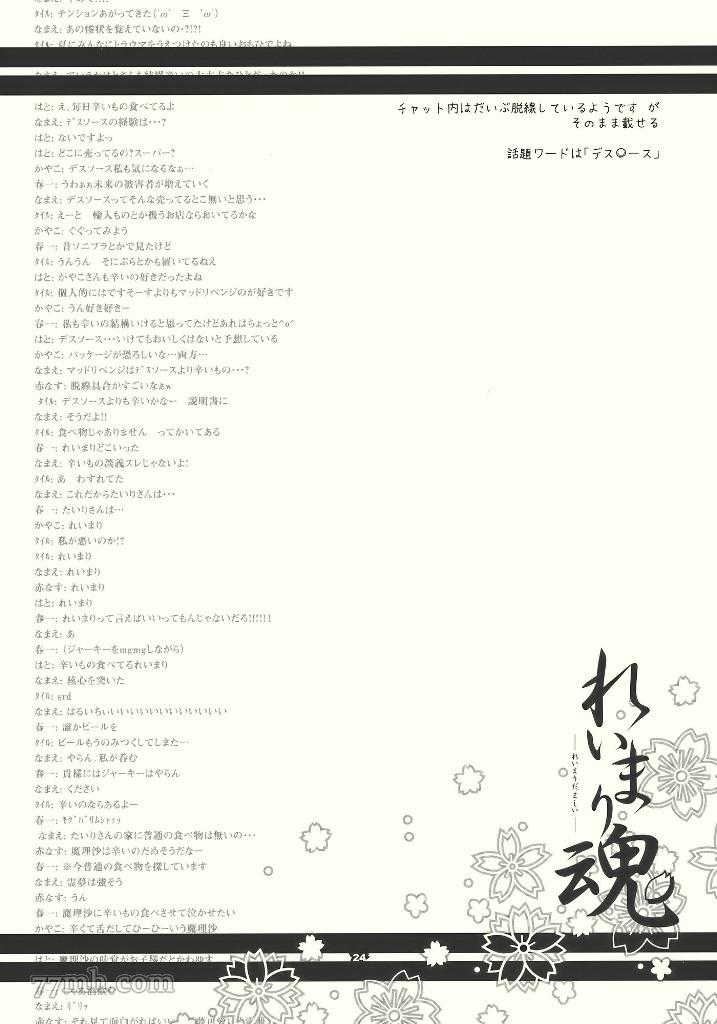 ﾀｲﾙ: テンションあがってきた('ω'　Ξ　'ω')
なまえ: あの惨状を覚えていないの･?!?!
ﾀｲﾙ: 夏にみんなにトラウマをうえつけたのも良いおもひでよね
はと: え、毎日辛いもの食べてるよ
なまえ: デスソースの経験は･･･?
はと: ないですよっ
はと: どこに売ってるの?スーパー?
かやこ: デスソース私も気になるなぁ…
春一: うわぁぁ未来の被害者が増えていく
なまえ: デスソースってそんな売ってるとこ無いと思う･･･
ﾀｲﾙ: えーと　輸入ものとか扱うお店ならおいてるかな
かやこ: ぐぐってみよう
春一: 昔ソニプラとかで見たけど
ﾀｲﾙ: うんうん　そにぷらとかも置いてるねえ
はと: かやこさんも辛いの好きだったよね
ﾀｲﾙ: 個人的にはですそーすよりもマッドリベンジのが好きです
かやこ: うん好き好きー
春一: 私も辛いの結構いけると思ってたけどあれはちょっと^o^
はと: デスソース･･･いけてもおいしくはないと予想している
かやこ: パッケージが恐ろしいな…両方…
なまえ: マッドリベンジはデスソースより辛いもの･･･?
赤なす: 脱線具合がすごいなぁw
ﾀｲﾙ: デスソースよりも辛いかなー　説明書に
なまえ: そうだよ!!
ﾀｲﾙ: 食べ物じゃありません　ってかいてある
春一: れいまりどこいった
なまえ: 辛いもの談義スレじゃないよ!
ﾀｲﾙ: あ　わすれてた
なまえ: これだからたいりさんは･･･
春一: たいりさんは…
かやこ: れいまり
ﾀｲﾙ: 私が悪いのか!?
ﾀｲﾙ: れいまり
なまえ: れいまり
赤なす: れいまり
はと: れいまり
春一: れいまりって言えばいいってもんじゃないだろ!!!!!1
なまえ: あ
春一: (ジャーキーをmgmgしながら)
はと: 辛いもの食べてるれいまり
なまえ: 核心を突いた
ﾀｲﾙ: srd
なまえ: はるいちぃいいいいいいいいいいいい
春一: 誰かビールを
ﾀｲﾙ: ビールもうのみつくしてしまた…
なまえ: やらん、私が呑む
春一: 貴様にはジャーキーはやらん
なまえ: ください
ﾀｲﾙ: 辛いのならあるよー
春一: ﾓｸﾞﾊﾞﾘﾑｼｬｯｯ
なまえ: たいりさんの家に普通の食べ物は無いの･･･
赤なす: 魔理沙は辛いのだめそうだなー
春一: ※今普通の食べ物を探しています
なまえ: 霊夢は強そう
赤なす: うん
春一: 魔理沙に辛いもの食べさせて泣かせたい
かやこ: 辛くて舌だしてひーひーいう魔理沙
はと: 魔理沙の味覚がお子様だとかわゆす
なまえ: ｷﾞﾘｯ
チャット内はだいぶ脱線しているようです　が
そのまま載せる
話題ワードは「デス○ース」
れいまり魂
―れいまりだましい―
24
77mh.com